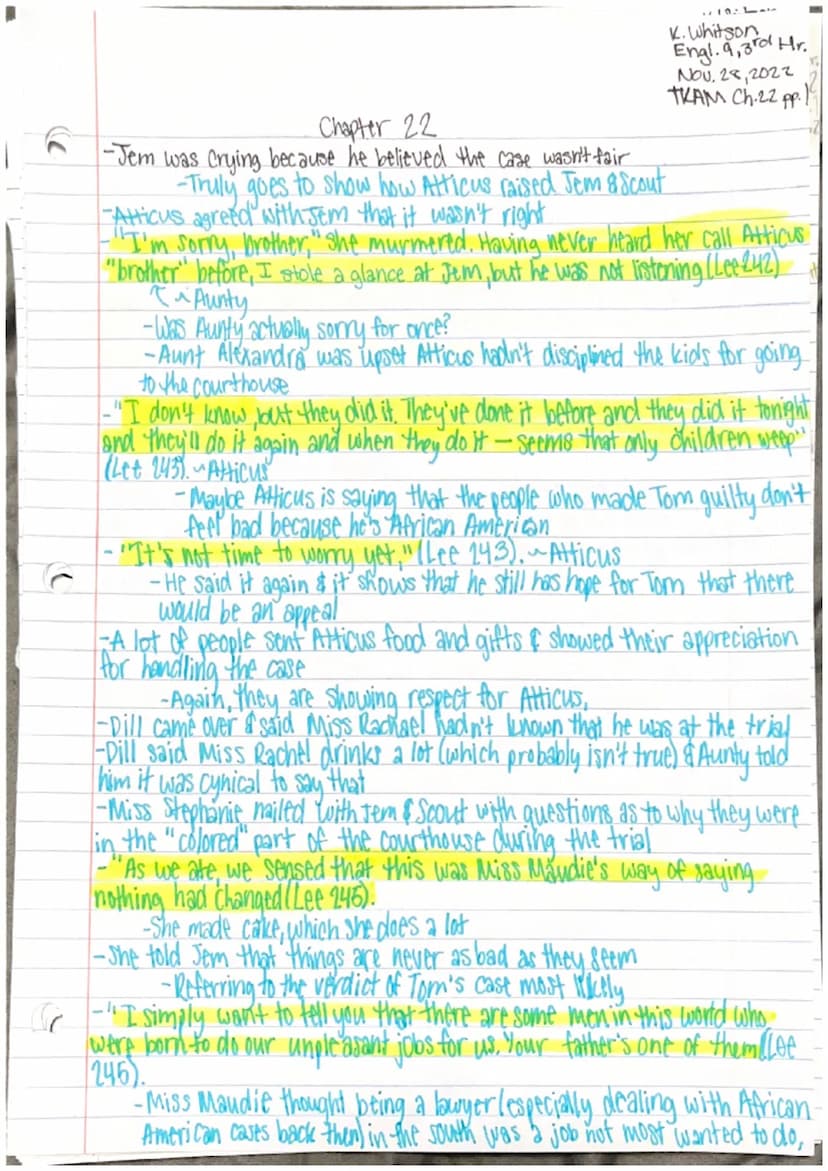 K. Whitson
Engl. 9, 3rd Hr.
Nov. 28, 2022
TKAM Ch.22 pp.1
Chapter 22
-Jem was crying because he believed the case wasn't fair
-Truly goes to show how Atticus raised Jem & Scout
-Atticus agreed with Jem that it wasn't right
-"I'm sorry, brother," she murmered. Having never heard her call Atticus
"brother" before, I stole a glance at Jem, but he was not listening (Lee 242)
~Aunty
-Was Aunty actually sorry for once?
-Aunt Alexandra was upset Atticus hadn't disciplined the kids for going
to the courthouse
-"I don't know, but they did it. They've done it before and they did it tonight
and they'll do it again and when they do it — seems that only children weep"
(Lee 243). ~Atticus
-Maybe Atticus is saying that the people who made Tom guilty don't
feel bad because he's African American
-"It's not time to worry yet," (Lee 243). ~Atticus
-He said it again & it shows that he still has hope for Tom that there
would be an appeal
-A lot of people sent Atticus food and gifts & showed their appreciation
for handling the case
-Again, they are showing respect for Atticus.
-Dill came over & said Miss Rachael hadn't known that he was at the trial
-Dill said Miss Rachel drinks a lot (which probably isn't true) & Aunty told
him it was cynical to say that
-Miss Stephanie nailed with Jem & Scout with questions as to why they were
in the "colored" part of the courthouse during the trial
-"As we ate, we sensed that this was Miss Maudie's way of saying
nothing had changed (Lee 245).
-She made cake, which she does a lot
-She told Jem that things are never as bad as they seem
-Referring to the verdict of Tom's case most likely
-"I simply want to tell you that there are some men in this world who
were born to do our unpleasant jobs for us. Your father's one of them (Lee
245).
-Miss Maudie thought being a lawyer (especially dealing with African
American cases back then) in the south was a job not most wanted to do,